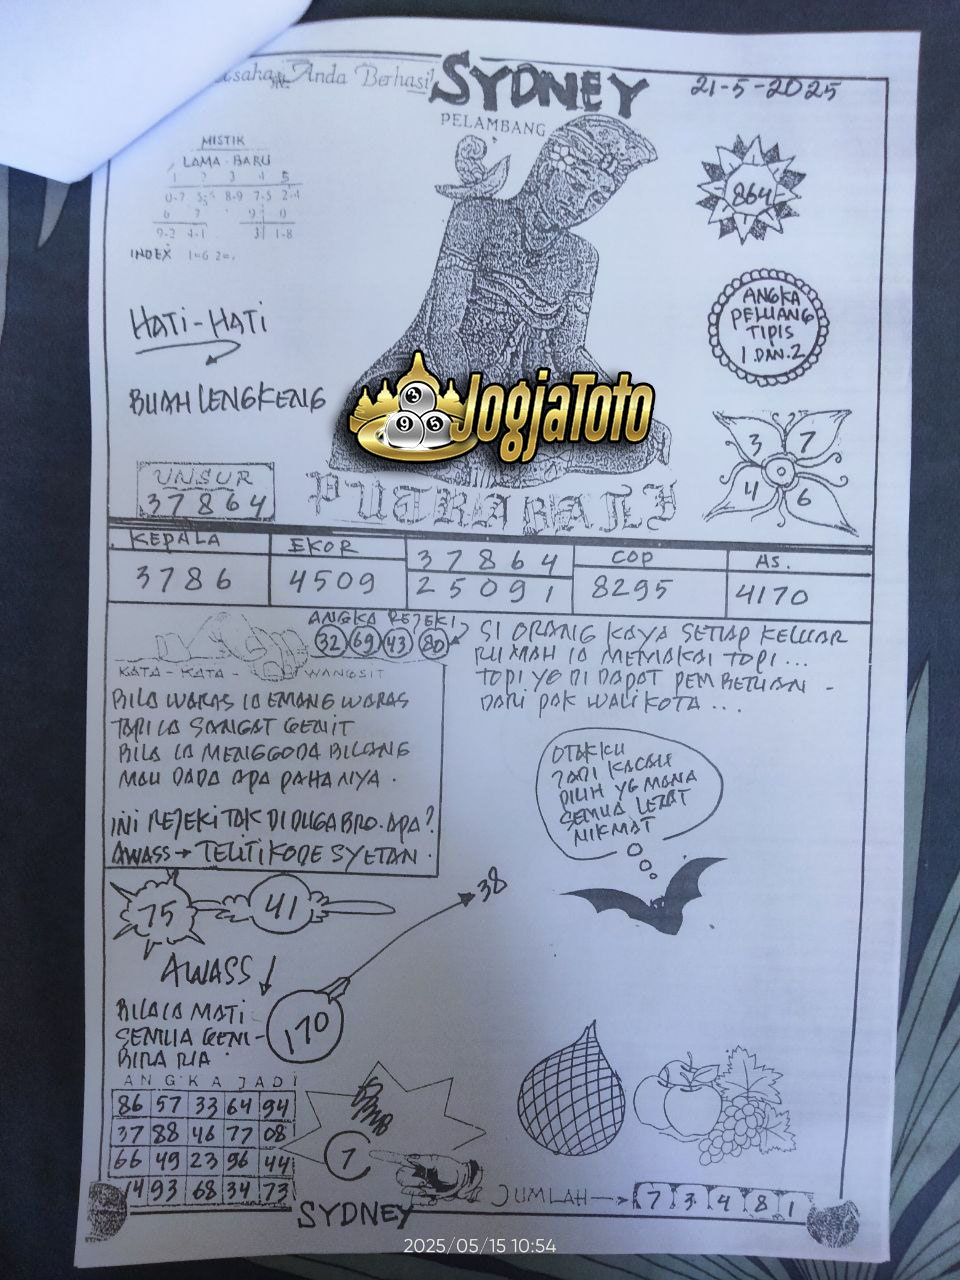 Anda Berhasil
SYDNEY
21-5-2025
PELAMBANG
MISTIK
LAMA - BARU
1 2 3 4 5
0-7 8-9 7-5 2-4
6 7 9 0
9-2 4-1 3 1-8
INDEX 1=6
864
HATI-HATI
ANGKA
PELUANG
TIPIS
1 DAN 2
BUAH LENGKENG
JogjaToto
3 9 5
3 7
4 6
UNSUR
37864
PUTRA BALI
KEPALA EKOR 37864 COP AS.
3786 4509 25091 8295 4170
ANGKA REJEKI
32 69 43 80
KATA - KATA - WANGSIT
BILA WARAS IA EMANG WARAS
TAPI IA SANGAT GENIT
BILA IA MENGGODA BILANG
MAU DADA APA PAHANYA.
INI REJEKI TAK DIDUGA BRO. APA?
AWASS → TELITI KODE SYETAN.
SI ORANG KAYA SETIAP KELUAR
RUMAH IA MEMAKAI TOPI...
TOPI YG DI DAPAT PEMBERIAN -
DARI PAK WALIKOTA ...
OTAKKU
PILIH YG MANA
SEMUA LEZAT
NIKMAT
75 41
38
AWASS ↓
BILA IA MATI
SEMUA GEM-
BIRA RIA
170
ANGKA JADI
86 57 33 64 94
37 88 46 77 08
66 49 23 96 44
14 93 68 34 73
7
SYDNEY
JUMLAH → 7 3 4 8 1
2025/05/15 10:54